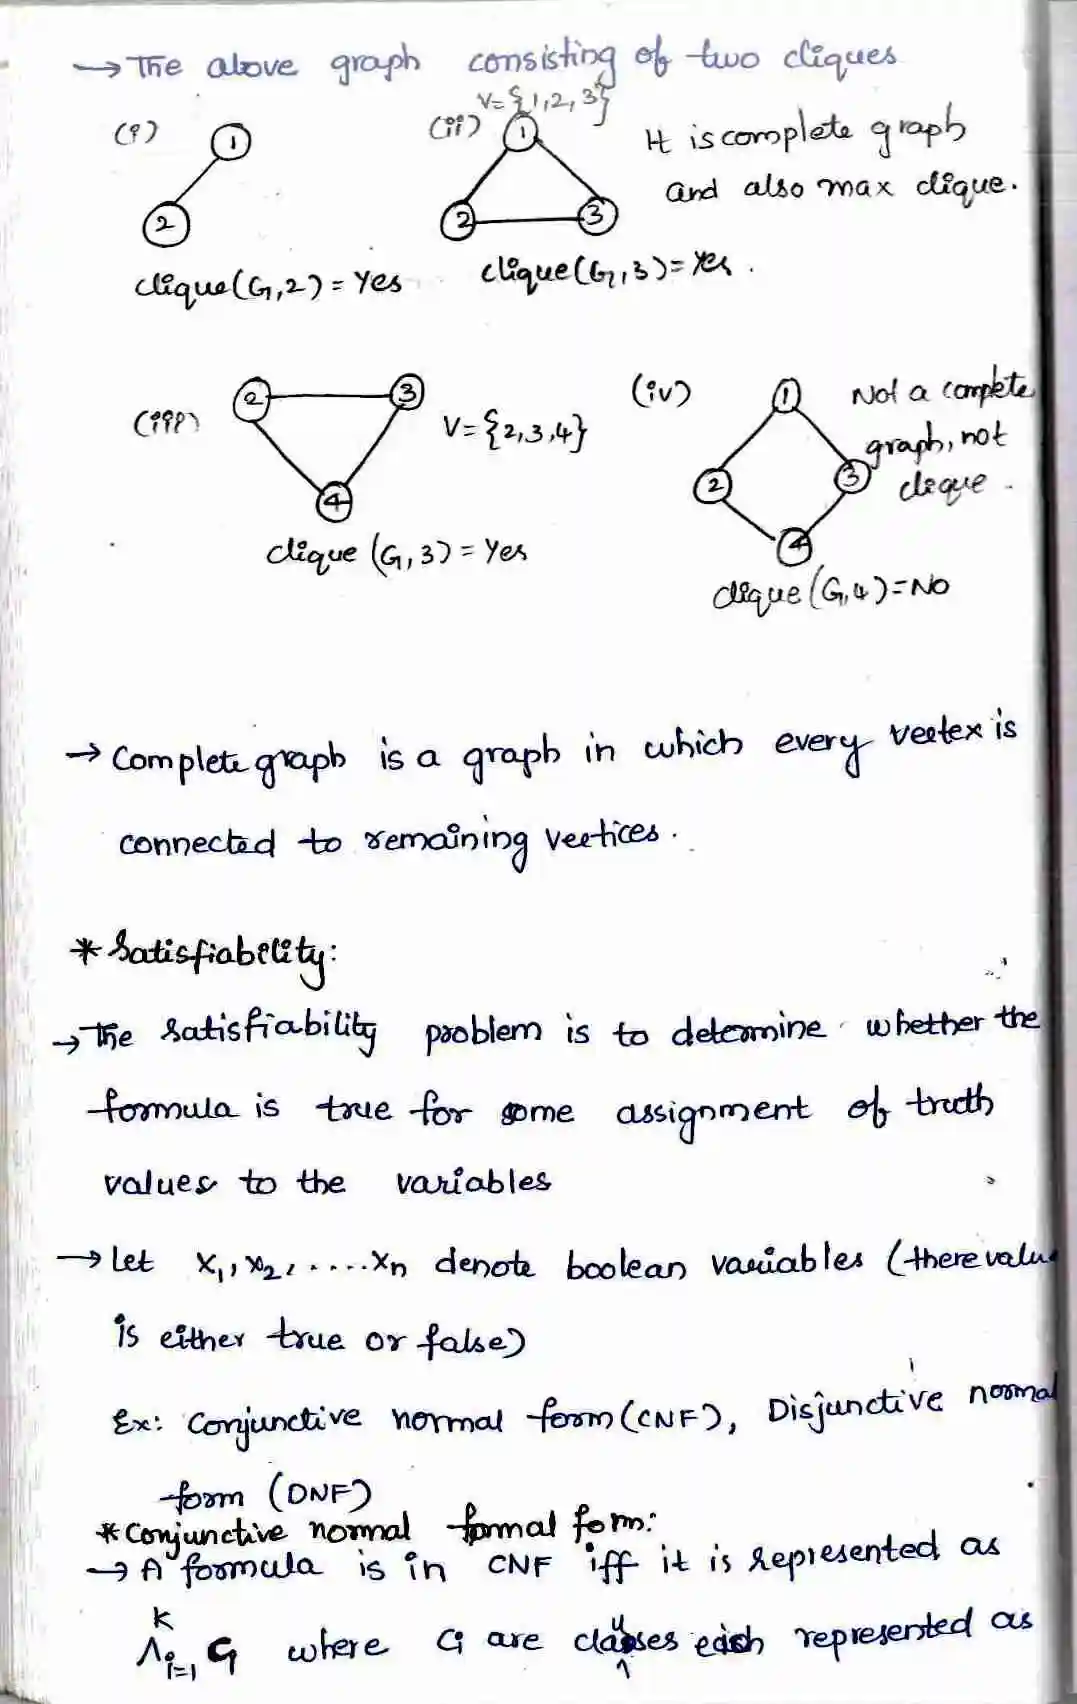 → The above graph consisting of two cliques
V={1,2,3}
(i) 1 2
(ii) 1 2 3
It is complete graph
and also max clique.
clique(G,2) = Yes
clique(G,3) = Yes.
(iii) 2 3 4
V={2,3,4}
clique (G,3) = Yes
(iv) 1 2 3 4
Not a complete
graph, not
clique.
clique(G,4)=No
→ Complete graph is a graph in which every vertex is
connected to remaining vertices.
* Satisfiability:
→ The satisfiability problem is to determine whether the
formula is true for some assignment of truth
values to the variables
→ Let x1, x2, .....xn denote boolean variables (there value
is either true or false)
Ex: Conjunctive normal form (CNF), Disjunctive normal
form (DNF)
* Conjunctive normal formal form:
→ A formula is in CNF iff it is represented as
k
Λi=1 Ci where Ci are clauses each represented as